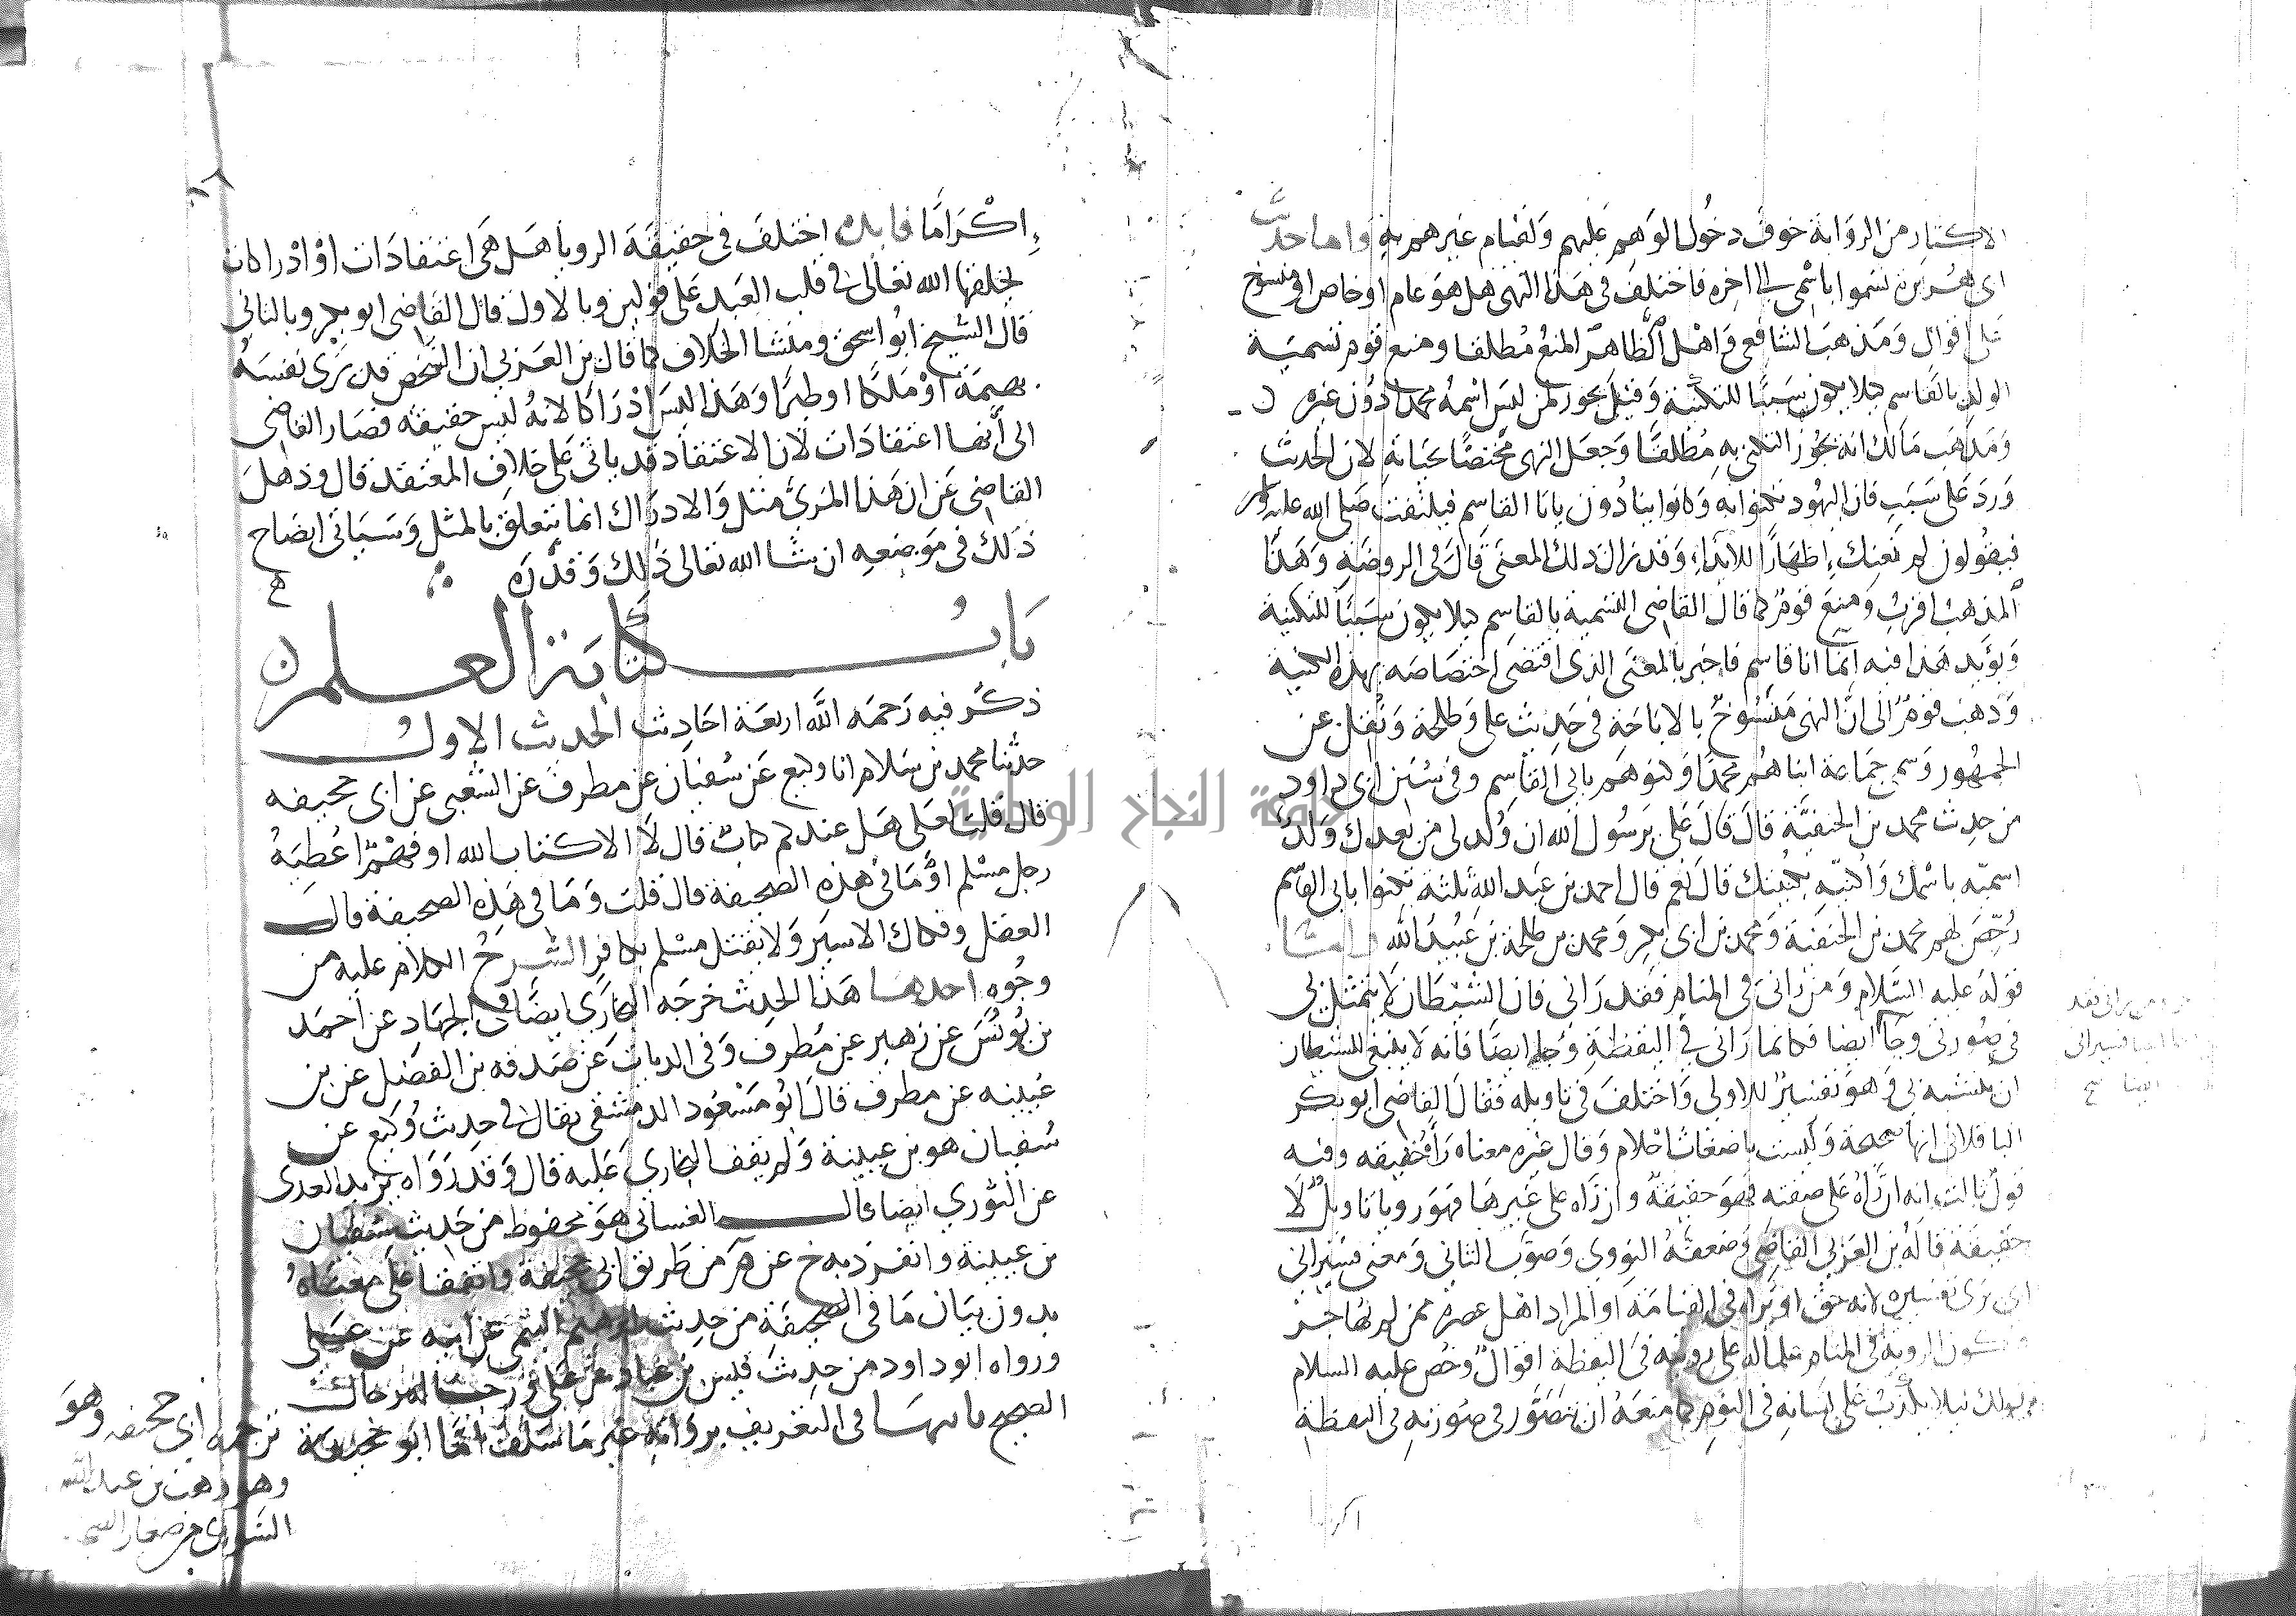 الاكثار من الرواية خوف دخول الوهم عليهم ولقيام غيرهم به واما حديث
ابي هريرة تسموا باسمي الى اخره فاختلف في هذا النهي هل هو عام او خاص او منسوخ
على اقوال ومذهب الشافعي واهل الظاهر المنع مطلقا ومنع قوم تسمية
الولد بالقاسم كيلا يكون سببا للتكنية وقيل يجوز لمن ليس اسمه محمدا دون غيره
ومذهب مالك انه يجوز التكني به مطلقا وجعل النهي مختصا بحياته لان الحديث
ورد على سبب فان اليهود تكنوا به وكانوا ينادون يابا القاسم فيلتفت صلى الله عليه وسلم
فيقولون لم نعنك إظهارا للايذاء وقد زال ذلك المعنى قال في الروضة وهذا
المذهب اقرب ومنع قوم كما قال القاضي التسمية بالقاسم كيلا يكون سببا للتكنية
ويؤيد هذا فيه انما انا قاسم فاخبر بالمعنى الذي اقتضى اختصاصه بهذه الكنية
وذهب قوم الى ان النهي منسوخ بالاباحة في حديث علي وطلحة ونقل عن
الجمهور وسمى جماعة ابناهم محمدا وكنوهم بابي القاسم وفي سنن ابي داود
من حديث محمد بن الحنفية قال قال علي يرسول الله ان ولد لي من بعدك ولد
اسميه باسمك واكنيه بكنيتك قال نعم قال احمد بن عبد الله ثلثة تكنوا بابي القاسم
رخص لهم محمد بن الحنفية ومحمد بن ابي بكر ومحمد بن طلحة بن عبيد الله
قوله عليه السلام ومن راني في المنام فقد راني فان الشيطان لا يتمثل بي
في صورتي وجا ايضا فكانما راني في اليقظة وجا ايضا فانه لا ينبغي للشيطان
ان يتشبه بي وهو تفسير للاولى واختلف في تاويله فقال القاضي ابو بكر
الباقلاني انها صحيحة وليست باضغاث احلام وقال غيره معناه راه حقيقه وفيه
قول ثالث انه ان راه على صفته فهو حقيقة وان راه على غيرها فهو رويا تاويل لا
حقيقة قاله بن العربي القاضي وضعفه النووي وصوب الثاني ومعنى فسيراني
اي يرى تفسيره لانه حق او يراه في القيامة او المراد اهل عصره ممن لم يهاجر
وتكون الروية في المنام علما له على رويته في اليقظة اقوال وخص عليه السلام
بذلك كيلا يكذب على لسانه في النوم كما منعه ان يتصور في صورته في اليقظة
اكراما
إكراما فايدة اختلف في حقيقة الرويا هل هي اعتقادات او ادراكات
يخلقها الله تعالى في قلب العبد على قولين وبالاول قال القاضي ابو بكر وبالثاني
قال الشيخ ابو اسحق ومنشا الخلاف كما قال بن العربي ان الشخص قد يرى نفسه
بهيمة او ملكا او طيرا وهذا ليس ادراكا لانه ليس حقيقة فصار القاضي
الى أنها اعتقادات لان الاعتقاد قد ياتي على خلاف المعتقد قال وذهل
القاضي عن ان هذا المرئي مثل والادراك انما يتعلق بالمثل وسياتي ايضاح
ذلك في موضعه ان شا الله تعالى ذلك وقدره
باب كتابة العلم
ذكر فيه رحمه الله اربعة احاديث الحديث الاول
حدثنا محمد بن سلام انا وكيع عن سفيان عن مطرف عن الشعبي عن ابي جحيفه
قال قلت لعلي هل عندكم كتاب قال لا الا كتاب الله او فهم اعطيه
رجل مسلم او ما في هذه الصحيفة قال قلت وما في هذه الصحيفة قال
العقل وفكاك الاسير ولا يقتل مسلم بكافر الشرح الكلام عليه من
وجوه احدها هذا الحديث خرجه البخاري ايضا في الجهاد عن احمد
بن يونس عن زهير عن مطرف وفي الديات عن صدقه بن الفضل عن بن
عيينه عن مطرف قال ابو مسعود الدمشقي يقال في حديث وكيع عن
سفيان هو بن عيينة ولم يقف البخاري عليه قال وقد رواه يزيد العدني
عن الثوري ايضا قال الغساني هو محفوظ من حديث سفيان
بن عيينة وانفرد به خ عن م من طريق ابي جحيفة واتفقا على معناه
بدون بيان ما في الصحيفة من حديث ابرهيم التيمي عن ابيه عن علي
ورواه ابو داود من حديث قيس بن عباد عن علي
الصحيح ثانيها في التعريف برواته غير ما سلف اما ابو جحيفة
ترجمة ابي جحيفه وهو
وهب بن عبد الله
السوائي من صغار
جامعة النجاح الوطنية